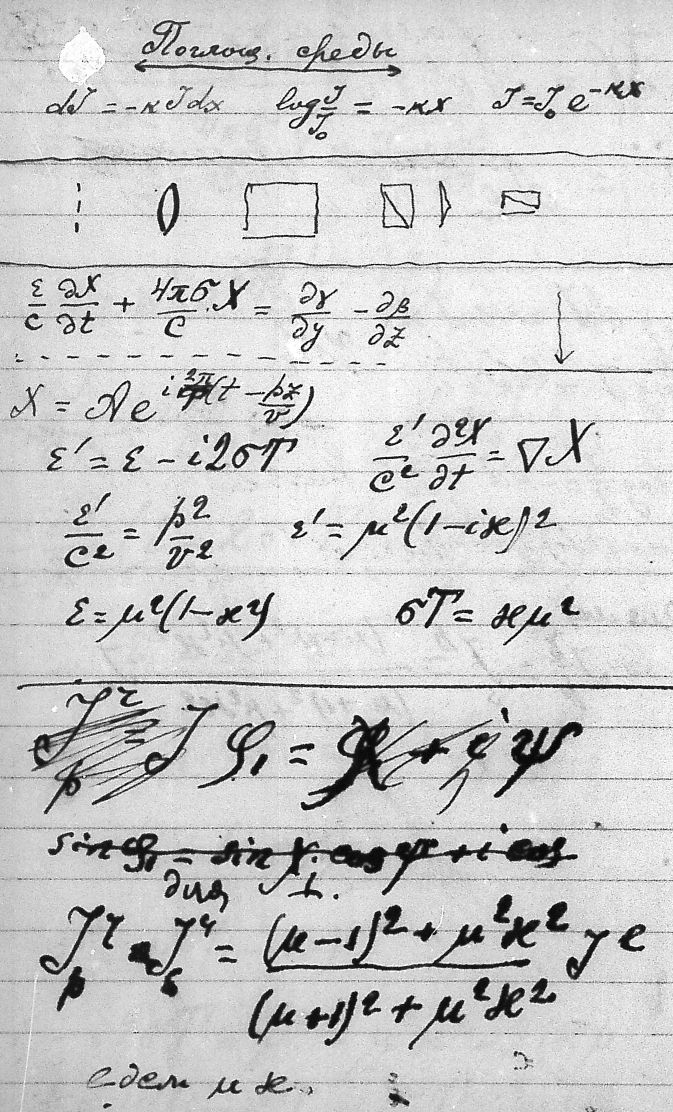 Поглощ. среды
dJ = -κJdx   log J/J₀ = -κx   J = J₀ e^{-κx}
ε/c ∂X/∂t + 4πσ/c X = ∂γ/∂y - ∂β/∂z
X = A e^{i 2π/T (t - pz/v)}
ε' = ε - i2σT   ε'/c² ∂²X/∂t = ∇X
ε'/c² = p²/v²   ε' = μ²(1-iϰ)²
ε = μ²(1-ϰ²)   σT = ϰμ²
φ₁ = χ + iψ
для ⊥.
J^r_p = J^r_s = ((μ-1)² + μ²ϰ²) / ((μ+1)² + μ²ϰ²) J^e